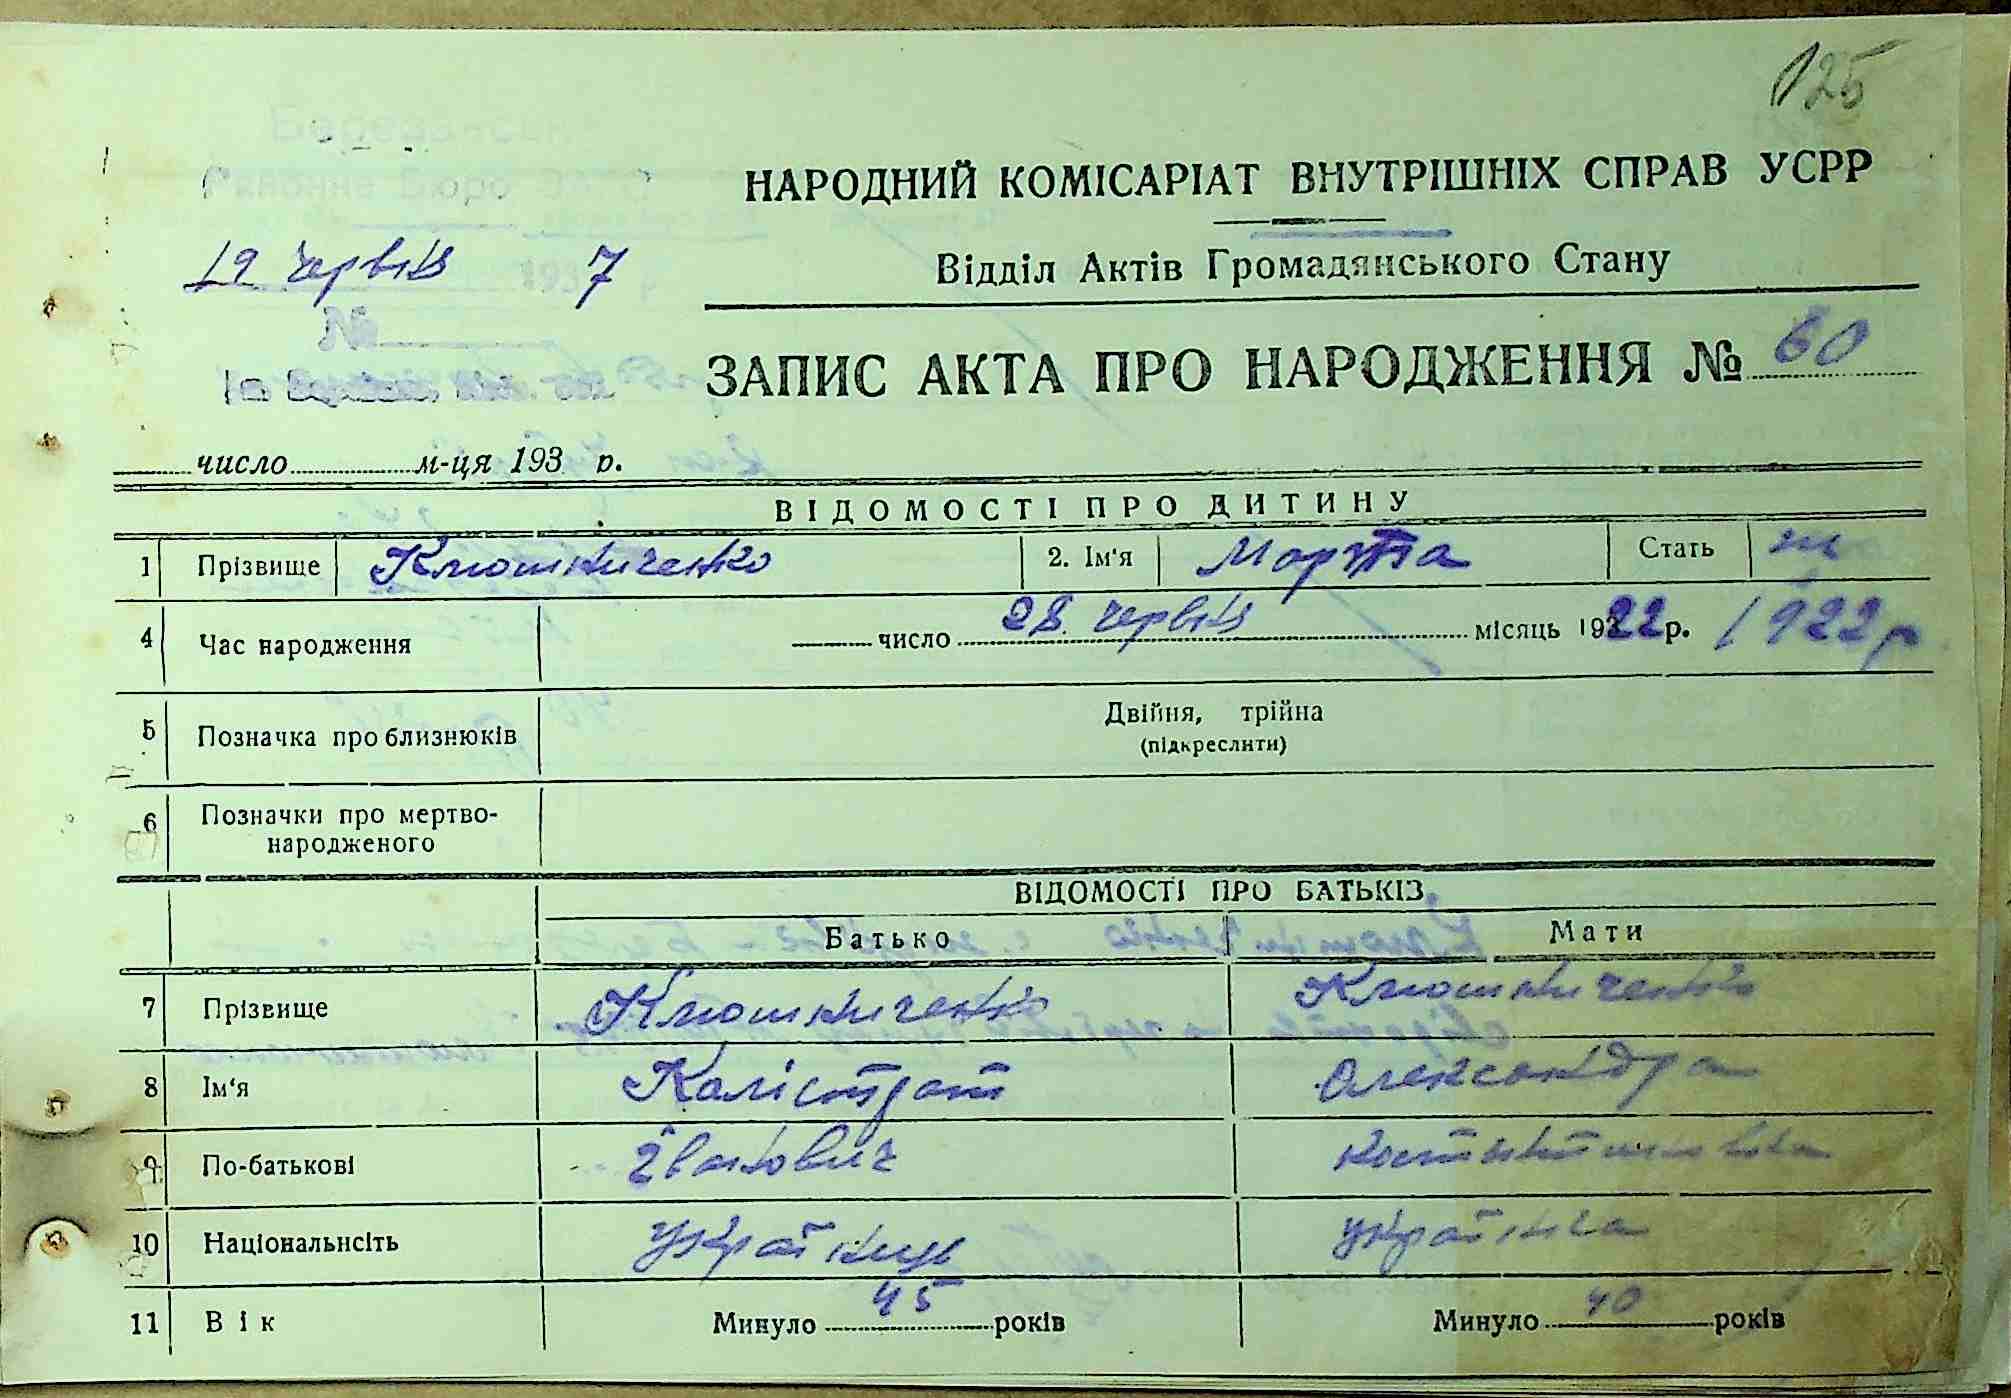 125
Районне Бюро ЗАГС
НАРОДНИЙ КОМІСАРІАТ ВНУТРІШНІХ СПРАВ УСРР
19 червня 1937 р
Відділ Актів Громадянського Стану
№
ЗАПИС АКТА ПРО НАРОДЖЕННЯ № 60
число м-ця 193 р.
ВІДОМОСТІ ПРО ДИТИНУ
1 Прізвище Клюшниченко 2. Ім'я Марта Стать ж
4 Час народження 28 червня число місяць 1922 р. 1922 р
5 Позначка про близнюків Двійня, трійна
(підкреслити)
6 Позначки про мертво-
народженого
ВІДОМОСТІ ПРО БАТЬКІВ
Батько Мати
7 Прізвище Клюшниченко Клюшниченко
8 Ім'я Калістрат Олександра
9 По-батькові Іванович Костянтинівна
10 Національнсіть Українець Українка
11 Вік Минуло 45 років Минуло 40 років